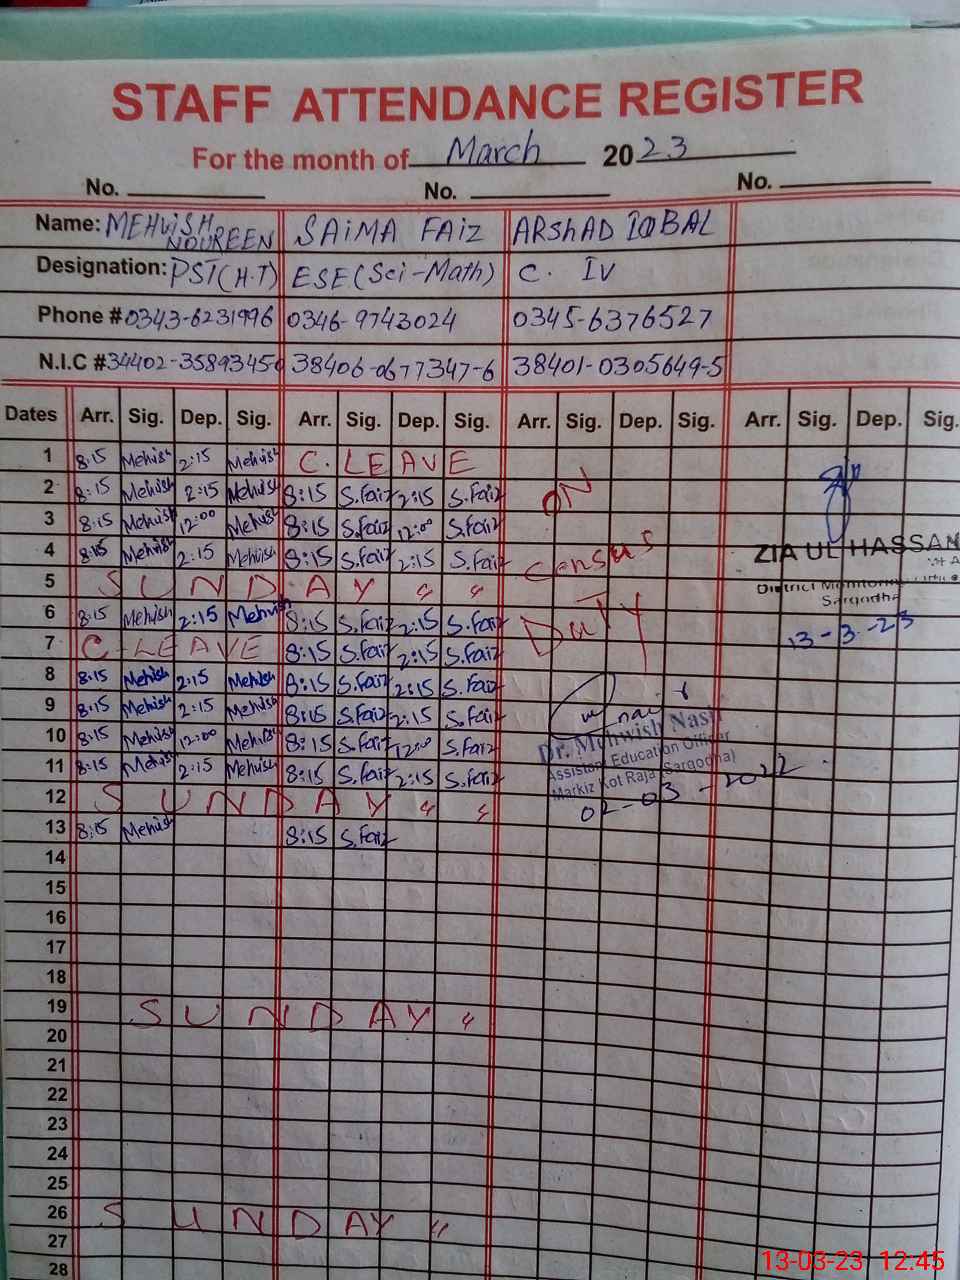 STAFF ATTENDANCE REGISTER
For the month of March 2023
No. No. No.
Name: MEHWISH NOUREEN SAIMA FAIZ ARSHAD IQBAL
Designation: PST(H.T) ESE(Sci-Math) C. IV
Phone # 0343-6231996 0346-9743024 0345-6376527
N.I.C # 34402-3589345-0 38406-0677347-6 38401-0305649-5
Dates Arr. Sig. Dep. Sig. Arr. Sig. Dep. Sig. Arr. Sig. Dep. Sig. Arr. Sig. Dep. Sig.
1 8:15 Mehwish 2:15 Mehwish C. LEAVE
2 8:15 Mehwish 2:15 Mehwish 8:15 S.Faiz 2:15 S.Faiz ON
3 8:15 Mehwish 12:00 Mehwish 8:15 S.Faiz 12:00 S.Faiz
4 8:15 Mehwish 2:15 Mehwish 8:15 S.Faiz 2:15 S.Faiz Census ZIA UL HASSAN
5 SUNDAY " " District Monitoring
Sargodha
6 8:15 Mehwish 2:15 Mehwish 8:15 S.Faiz 2:15 S.Faiz DuTY 13-3-23
7 C-LEAVE 8:15 S.Faiz 2:15 S.Faiz
8 8:15 Mehwish 2:15 Mehwish 8:15 S.Faiz 2:15 S.Faiz
9 8:15 Mehwish 2:15 Mehwish 8:15 S.Faiz 2:15 S.Faiz
10 8:15 Mehwish 12:00 Mehwish 8:15 S.Faiz 12:00 S.Faiz Dr. Mehwish Nasir
Assistant Education Officer
11 8:15 Mehwish 2:15 Mehwish 8:15 S.Faiz 2:15 S.Faiz Markiz Kot Raja (Sargodha)
12 SUNDAY " " 02-03-2022
13 8:15 Mehwish 8:15 S.Faiz
14
15
16
17
18
19 SUNDAY "
20
21
22
23
24
25
26 SUNDAY "
27
28
13-03-23 12:45